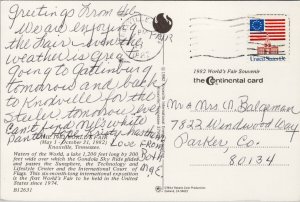 Greetings From the
We are enjoying
the Fair and the
weather is great
Going to Gatlinburg
tomarow and back
to Knoxville for the
Can't find
Love From
Both
(May 1 - October 31, 1982)
Knoxville, Tennessee
Waters of the World, a lake 1,200 feet long by 200
feet wide over which the Gondola Sky Ride glided
and passes the Sunsphere, the Technology and
Lifestyle Center and the International Court of
Flags. This six-month-long international exposition
is the first World's Fair to be held in the United
States since 1974.
B12631
1982 World's Fair Souvenir
the Continental card
United States 13c
Mr & Mrs M. Bolgeman
7822 Windwood Way
Parker, Co.
80134